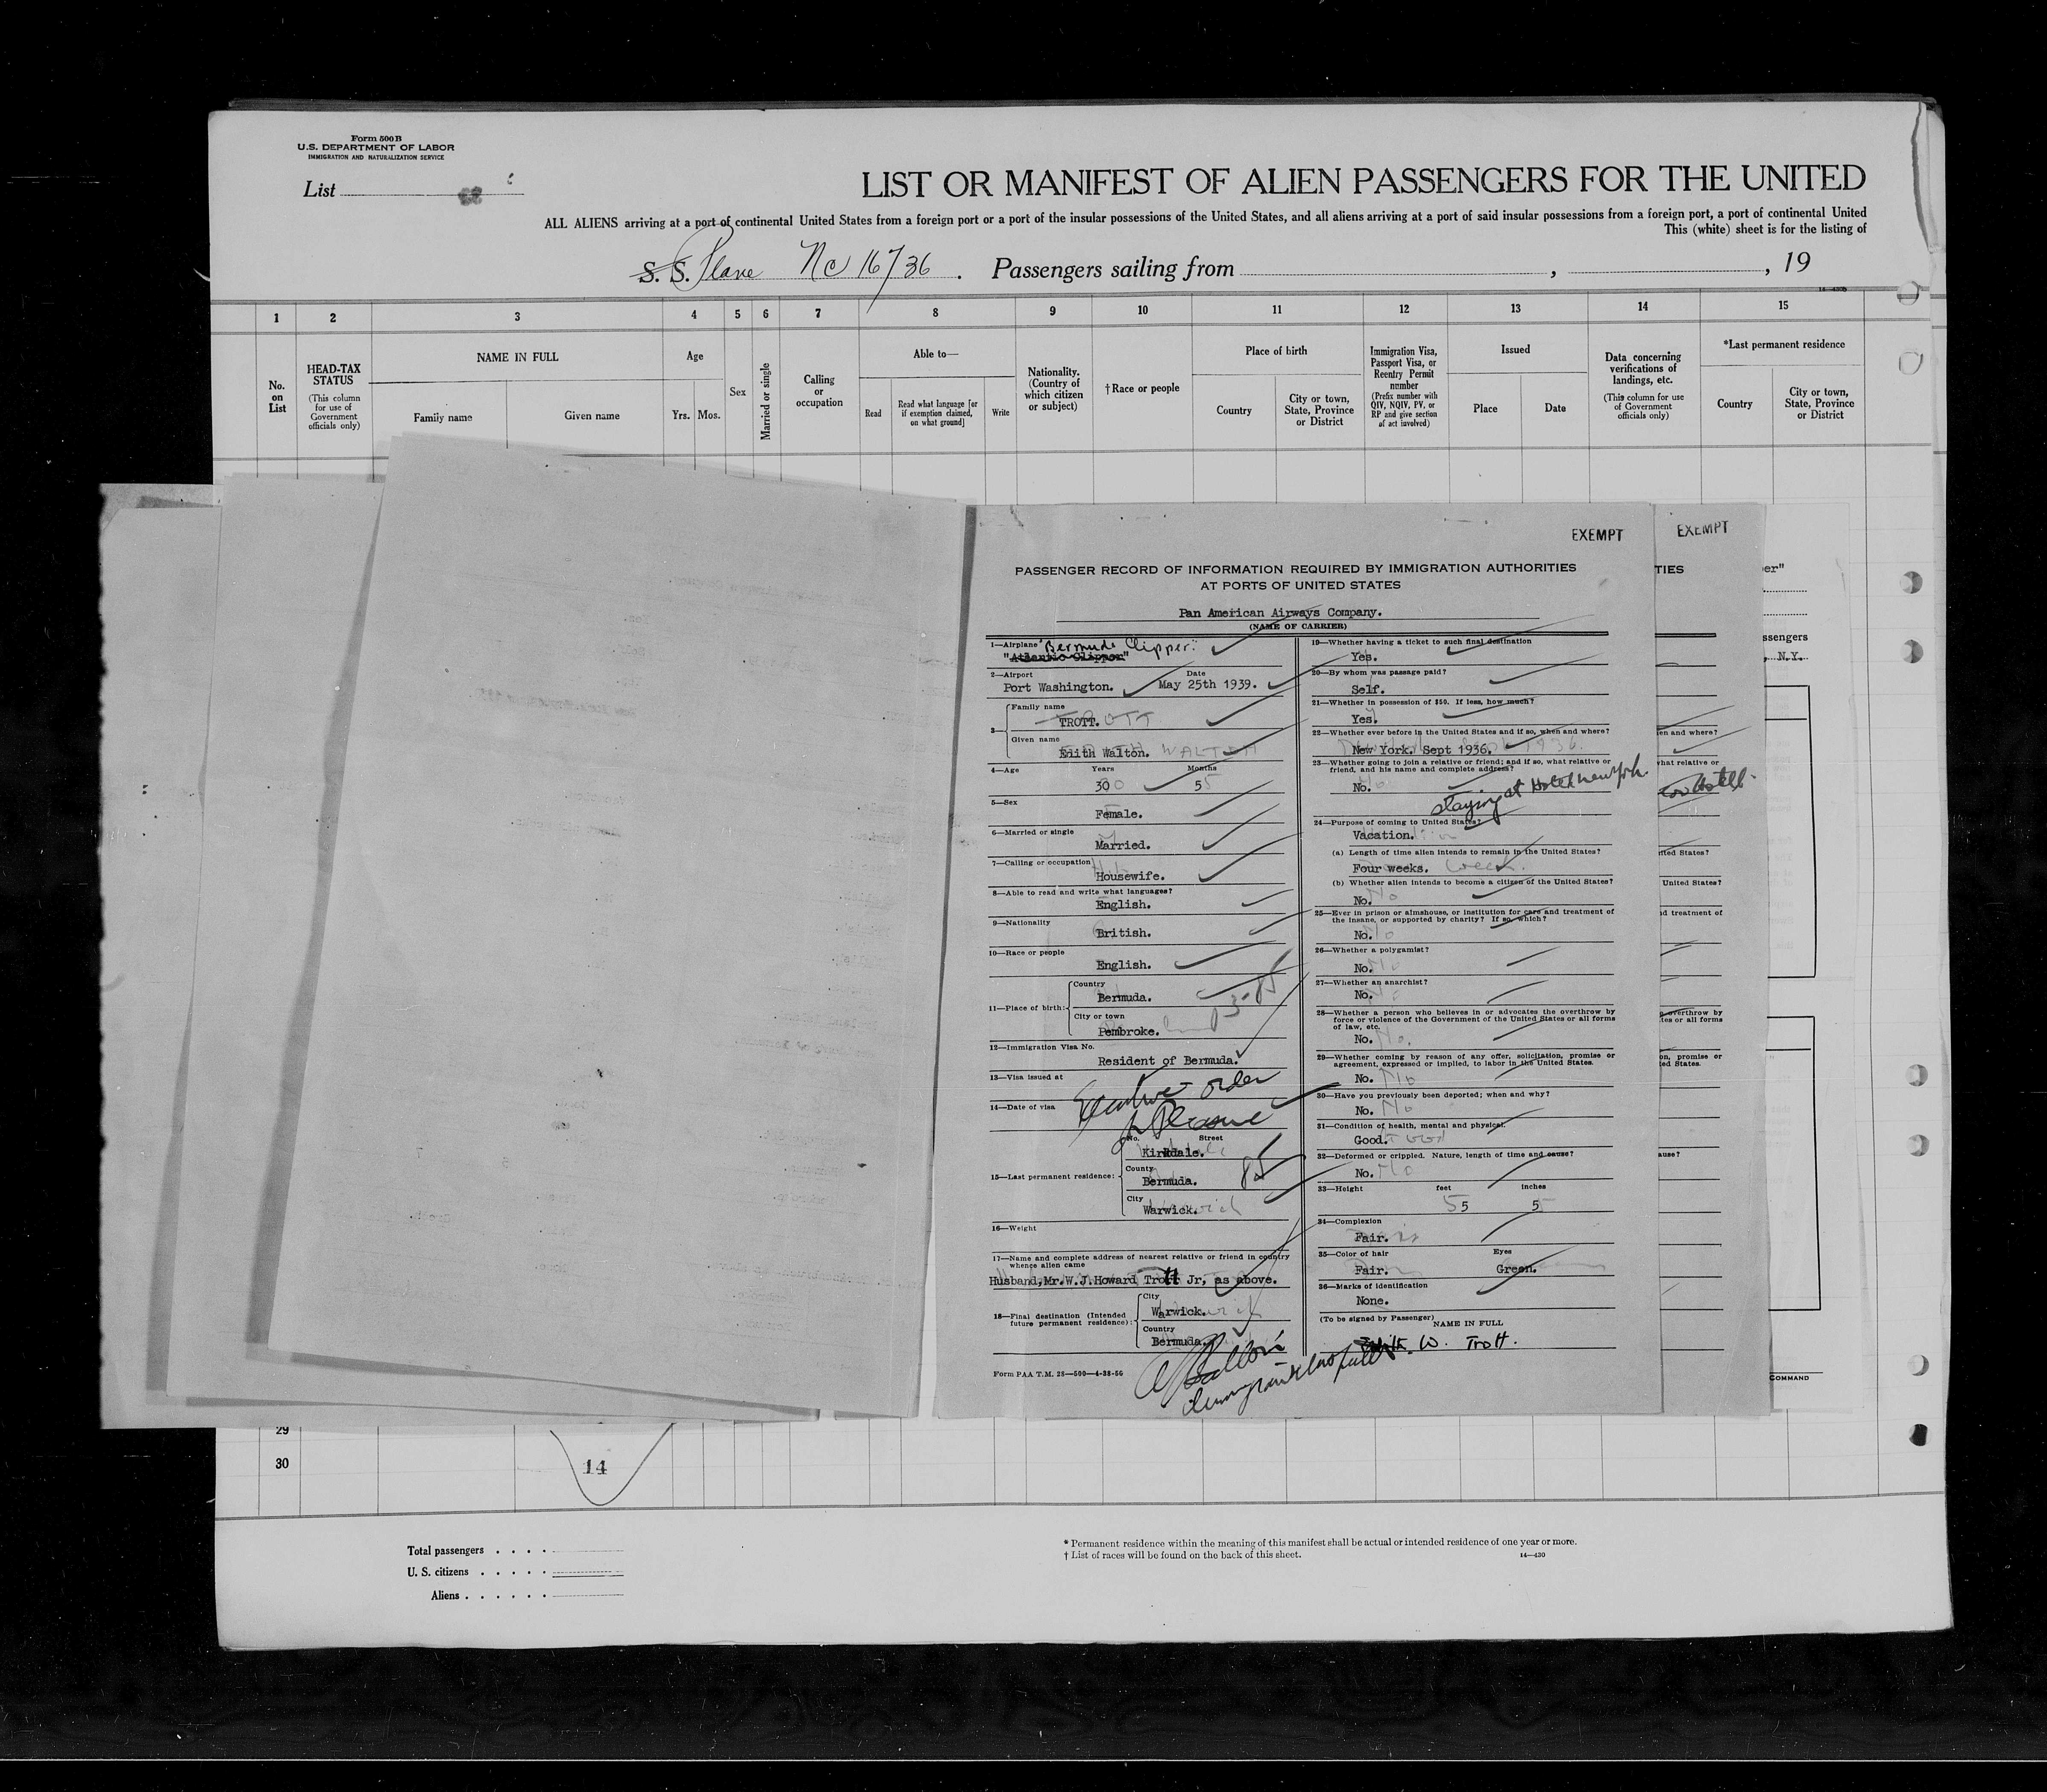 Form 500B
U.S. DEPARTMENT OF LABOR
IMMIGRATION AND NATURALIZATION SERVICE
List
LIST OR MANIFEST OF ALIEN PASSENGERS FOR THE UNITED
ALL ALIENS arriving at a port of continental United States from a foreign port or a port of the insular possessions of the United States, and all aliens arriving at a port of said insular possessions from a foreign port, a port of continental United
This (white) sheet is for the listing of
S. S. Plane NC 16736. Passengers sailing from , , 19
1 2 3 4 5 6 7 8 9 10 11 12 13 14 15
No. on List
HEAD-TAX STATUS
(This column for use of Government officials only)
NAME IN FULL
Family name
Given name
Age
Yrs. Mos.
Sex
Married or single
Calling or occupation
Able to—
Read
Read what language [or if exemption claimed, on what ground]
Write
Nationality. (Country of which citizen or subject)
†Race or people
Place of birth
Country
City or town, State, Province or District
Immigration Visa, Passport Visa, or Reentry Permit number
(Prefix number with QIV, NQIV, PV, or RP and give section of act involved)
Issued
Place
Date
Data concerning verifications of landings, etc.
(This column for use of Government officials only)
*Last permanent residence
Country
City or town, State, Province or District
EXEMPT
EXEMPT
PASSENGER RECORD OF INFORMATION REQUIRED BY IMMIGRATION AUTHORITIES
AT PORTS OF UNITED STATES
Pan American Airways Company.
(NAME OF CARRIER)
1—Airplane "Bermuda Clipper."
"Atlantic Clipper"
2—Airport Date
Port Washington. May 25th 1939.
3—
Family name
TROTT.
Given name
Edith Walton.
4—Age Years Months
30 5
5—Sex
Female.
6—Married or single
Married.
7—Calling or occupation
Housewife.
8—Able to read and write what languages?
English.
9—Nationality
British.
10—Race or people
English.
11—Place of birth:
Country
Bermuda.
City or town
Pembroke.
3-85
12—Immigration Visa No.
Resident of Bermuda.
13—Visa issued at
Executive order
14—Date of visa
Pleasure
No. Street
15—Last permanent residence:
County
Bermuda.
85
City
Warwick.
16—Weight
17—Name and complete address of nearest relative or friend in country
whence alien came
Husband, Mr. W. J. Howard Trott Jr, as above.
18—Final destination (Intended
future permanent residence):
City
Warwick.
Country
Bermuda.
Form PAA T.M. 28—500—4-38-50
19—Whether having a ticket to such final destination
Yes.
20—By whom was passage paid?
Self.
21—Whether in possession of $50. If less, how much?
Yes.
22—Whether ever before in the United States and if so, when and where?
New York. Sept 1936.
23—Whether going to join a relative or friend; and if so, what relative or
friend, and his name and complete address?
No.
staying at Hotel New York.
24—Purpose of coming to United States?
Vacation.
(a) Length of time alien intends to remain in the United States?
Four weeks.
(b) Whether alien intends to become a citizen of the United States?
No.
25—Ever in prison or almshouse, or institution for care and treatment of
the insane, or supported by charity? If so, which?
No.
26—Whether a polygamist?
No.
27—Whether an anarchist?
No.
28—Whether a person who believes in or advocates the overthrow by
force or violence of the Government of the United States or all forms
of law, etc.
No.
29—Whether coming by reason of any offer, solicitation, promise or
agreement, expressed or implied, to labor in the United States.
No.
30—Have you previously been deported; when and why?
No.
31—Condition of health, mental and physical.
Good.
32—Deformed or crippled. Nature, length of time and cause?
No.
33—Height feet inches
5 5
34—Complexion
Fair.
35—Color of hair Eyes
Fair. Green.
36—Marks of identification
None.
(To be signed by Passenger)
NAME IN FULL
Edith W. Trott.
TIES
er"
ssengers
, N.Y.
en and where?
what relative or
ited States?
United States?
nd treatment of
overthrow by
tes or all forms
on, promise or
ted States.
ause?
COMMAND
29
30
14
Total passengers . . . .
U. S. citizens . . . . .
Aliens . . . . . .
* Permanent residence within the meaning of this manifest shall be actual or intended residence of one year or more.
† List of races will be found on the back of this sheet.
14—430